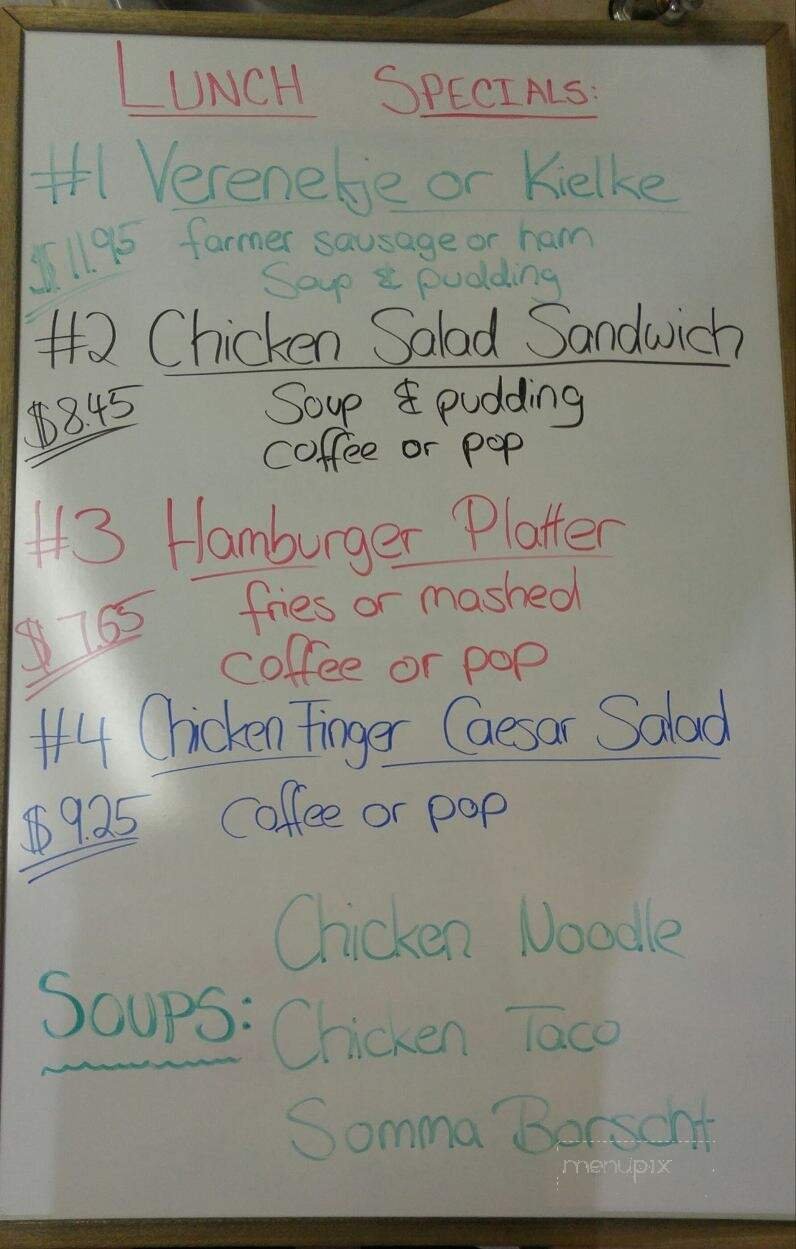 LUNCH SPECIALS:
#1 Verenekje or Kielke
$11.95 farmer sausage or ham
Soup & pudding
#2 Chicken Salad Sandwich
$8.45 Soup & pudding
coffee or pop
#3 Hamburger Platter
$7.65 fries or mashed
coffee or pop
#4 Chicken Finger Caesar Salad
$9.25 coffee or pop
Chicken Noodle
SOUPS: Chicken Taco
Somma Borscht
menupix